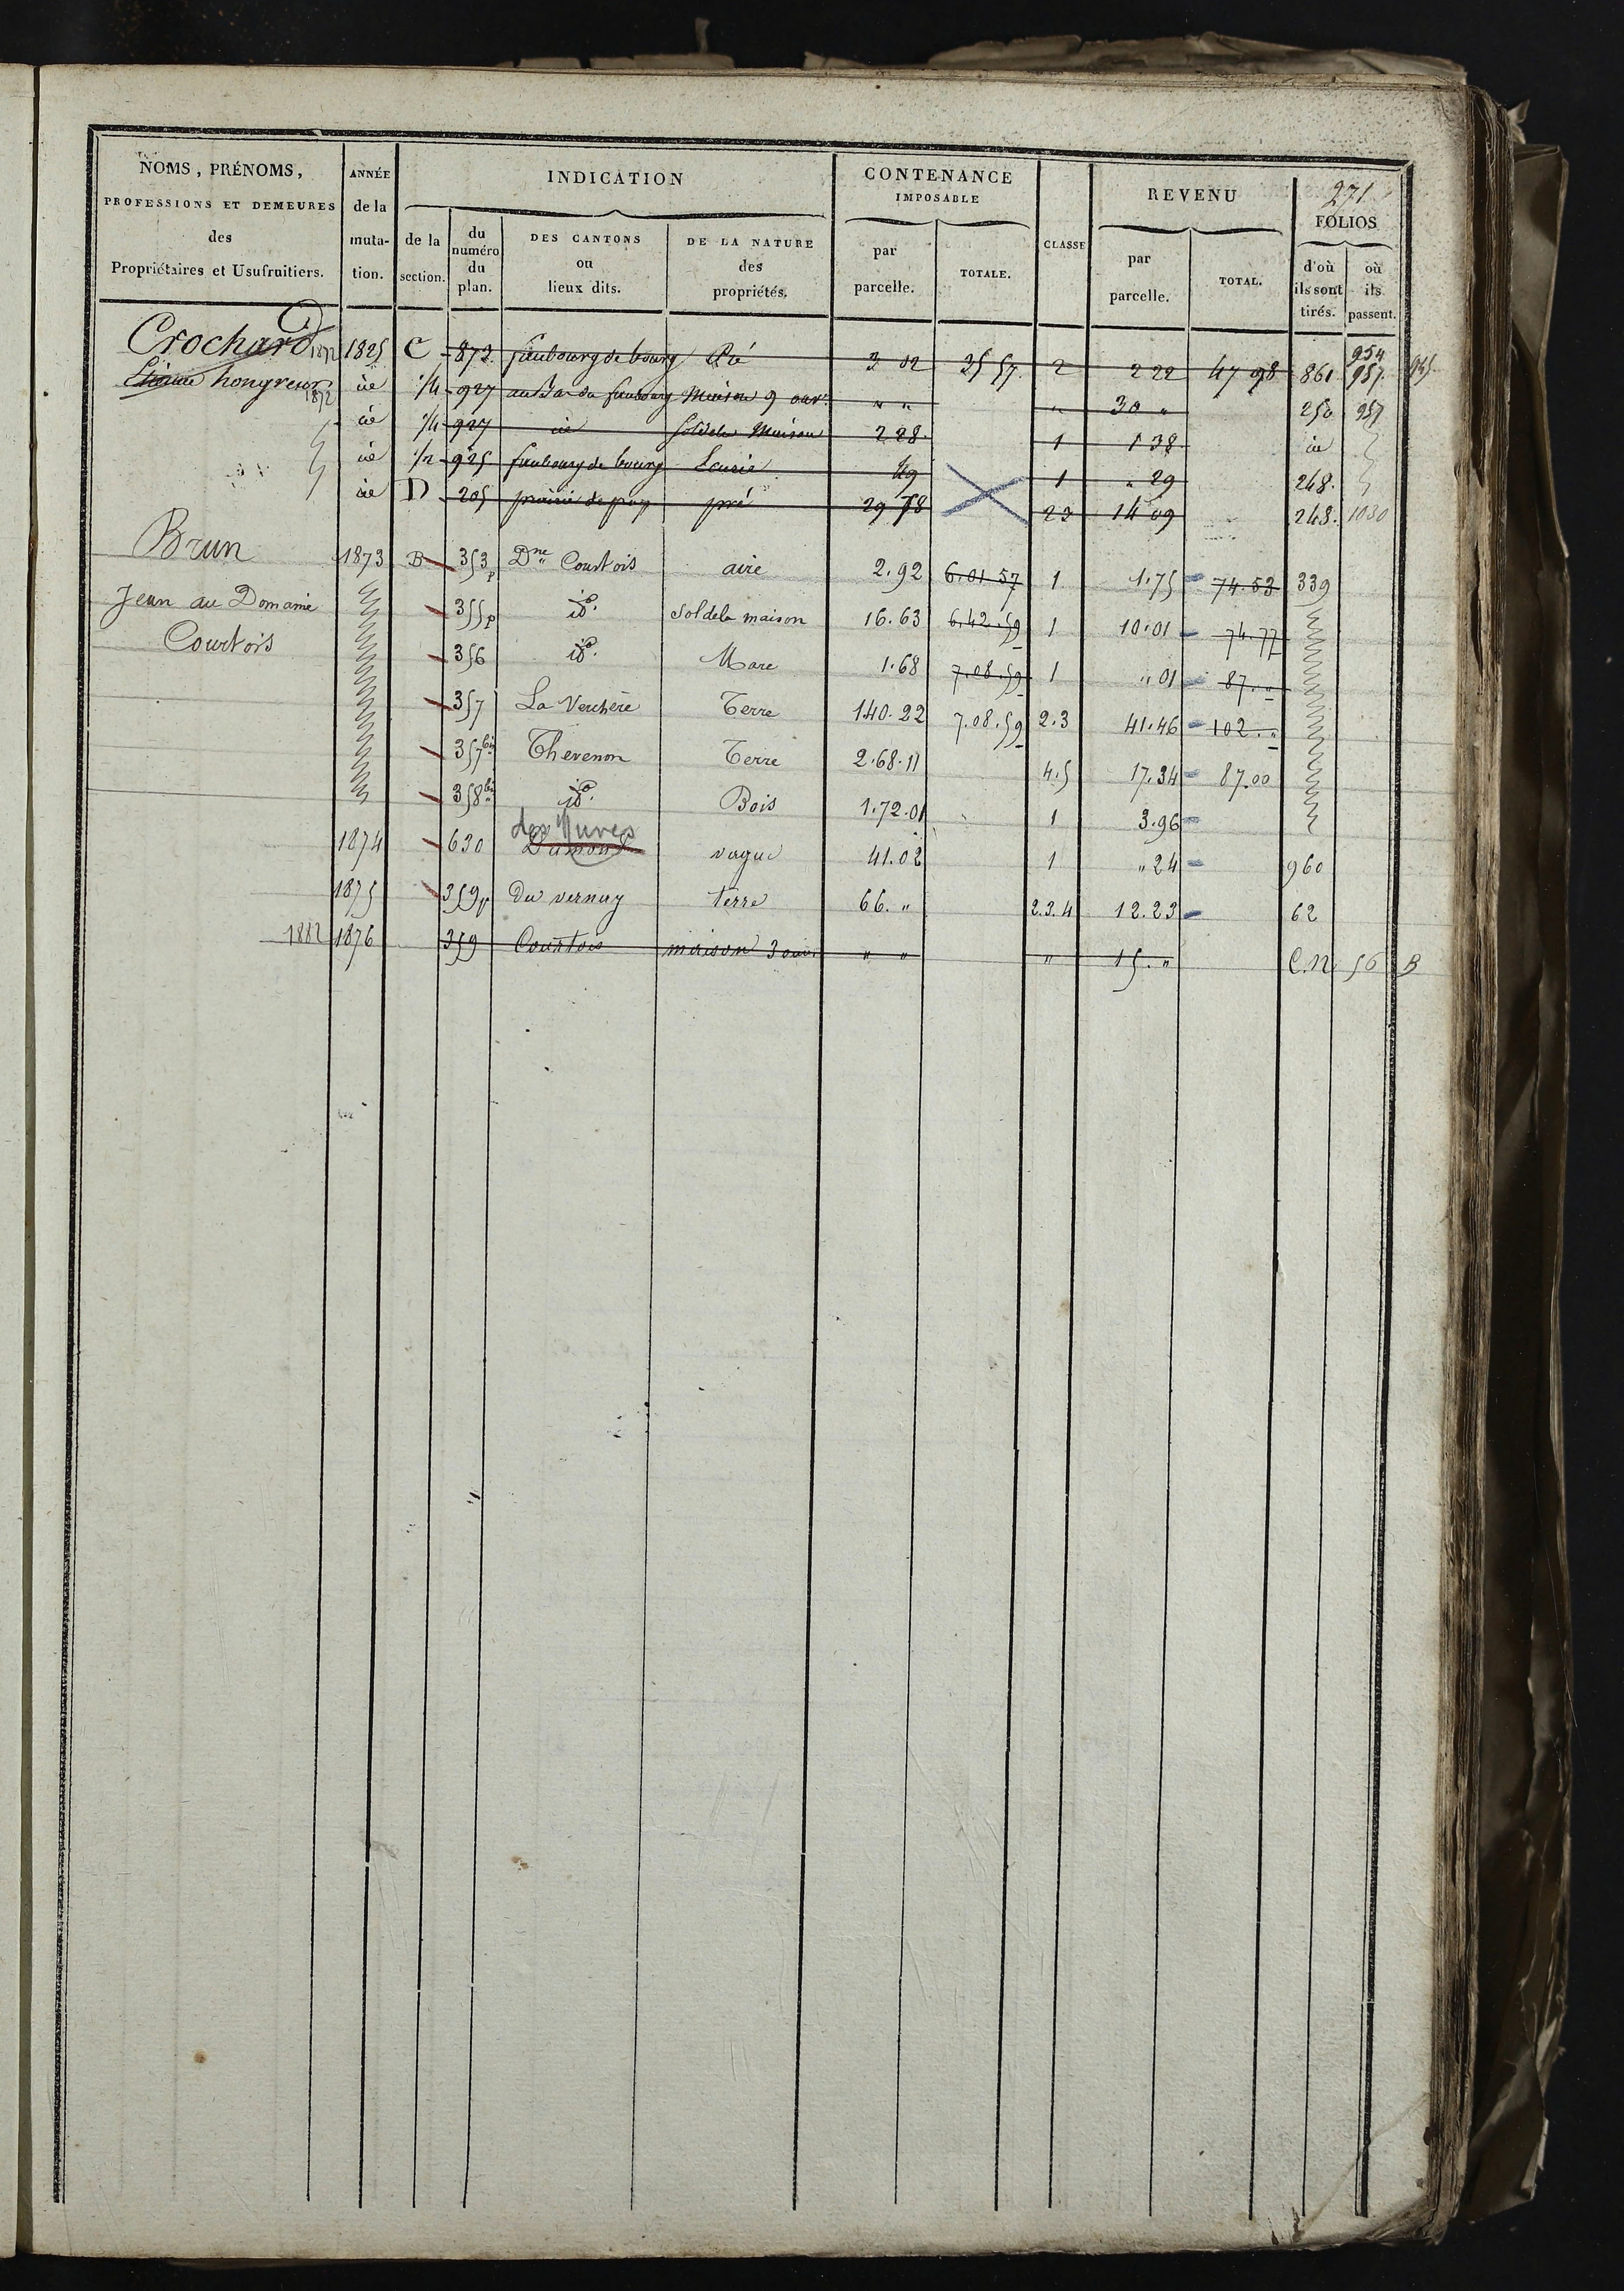 271
NOMS, PRÉNOMS, PROFESSIONS ET DEMEURES des Propriétaires et Usufruitiers.
ANNÉE de la mutation.
INDICATION
de la section.
du numéro du plan.
DES CANTONS ou lieux dits.
DE LA NATURE des propriétés.
CONTENANCE IMPOSABLE
par parcelle.
TOTALE.
CLASSE
REVENU
par parcelle.
TOTAL.
FOLIOS
d'où ils sont tirés.
où ils passent.
Crochard 1872 1825 C 873 faubourg de bourg Pré 3 02 35 57 2 2 22 47 98 861 954 957
hongreur 1872 id 1/4 927 au Bas du faubourg Maison 9 ouv. " " " 30 " 250 957
id 1/4 927 id Sol de la Maison 2 28 1 1 38 id
id 1/2 925 faubourg de bourg 49 1 " 29 248.
id D 205 pré 29 78 23 14 09 248. 1030
Brun 1873 B 353p Dne Courtois aire 2.92 6.01 57 1 1.75 74.53 339
Jean au Domaine 355p id. Sol de la maison 16.63 6.42.59 1 10.01 74.77
Courtois 356 id. Mare 1.68 7.08.59 1 " 01 87. "
357 La Verchère Terre 140.22 7.08.59 2.3 41.46 102. "
357bis Thevenon Terre 2.68.11 4.5 17.34 87.00
358bis id. Bois 1.72.01 1 3.96
des Mures
1874 630 vague 41.02 1 " 24 960
1875 359p Du vernay terre 66. " 2.3.4 12.23 62
1882 1876 359 Courtois maison 3 ouv. " " " 15. " C.N. 56 B